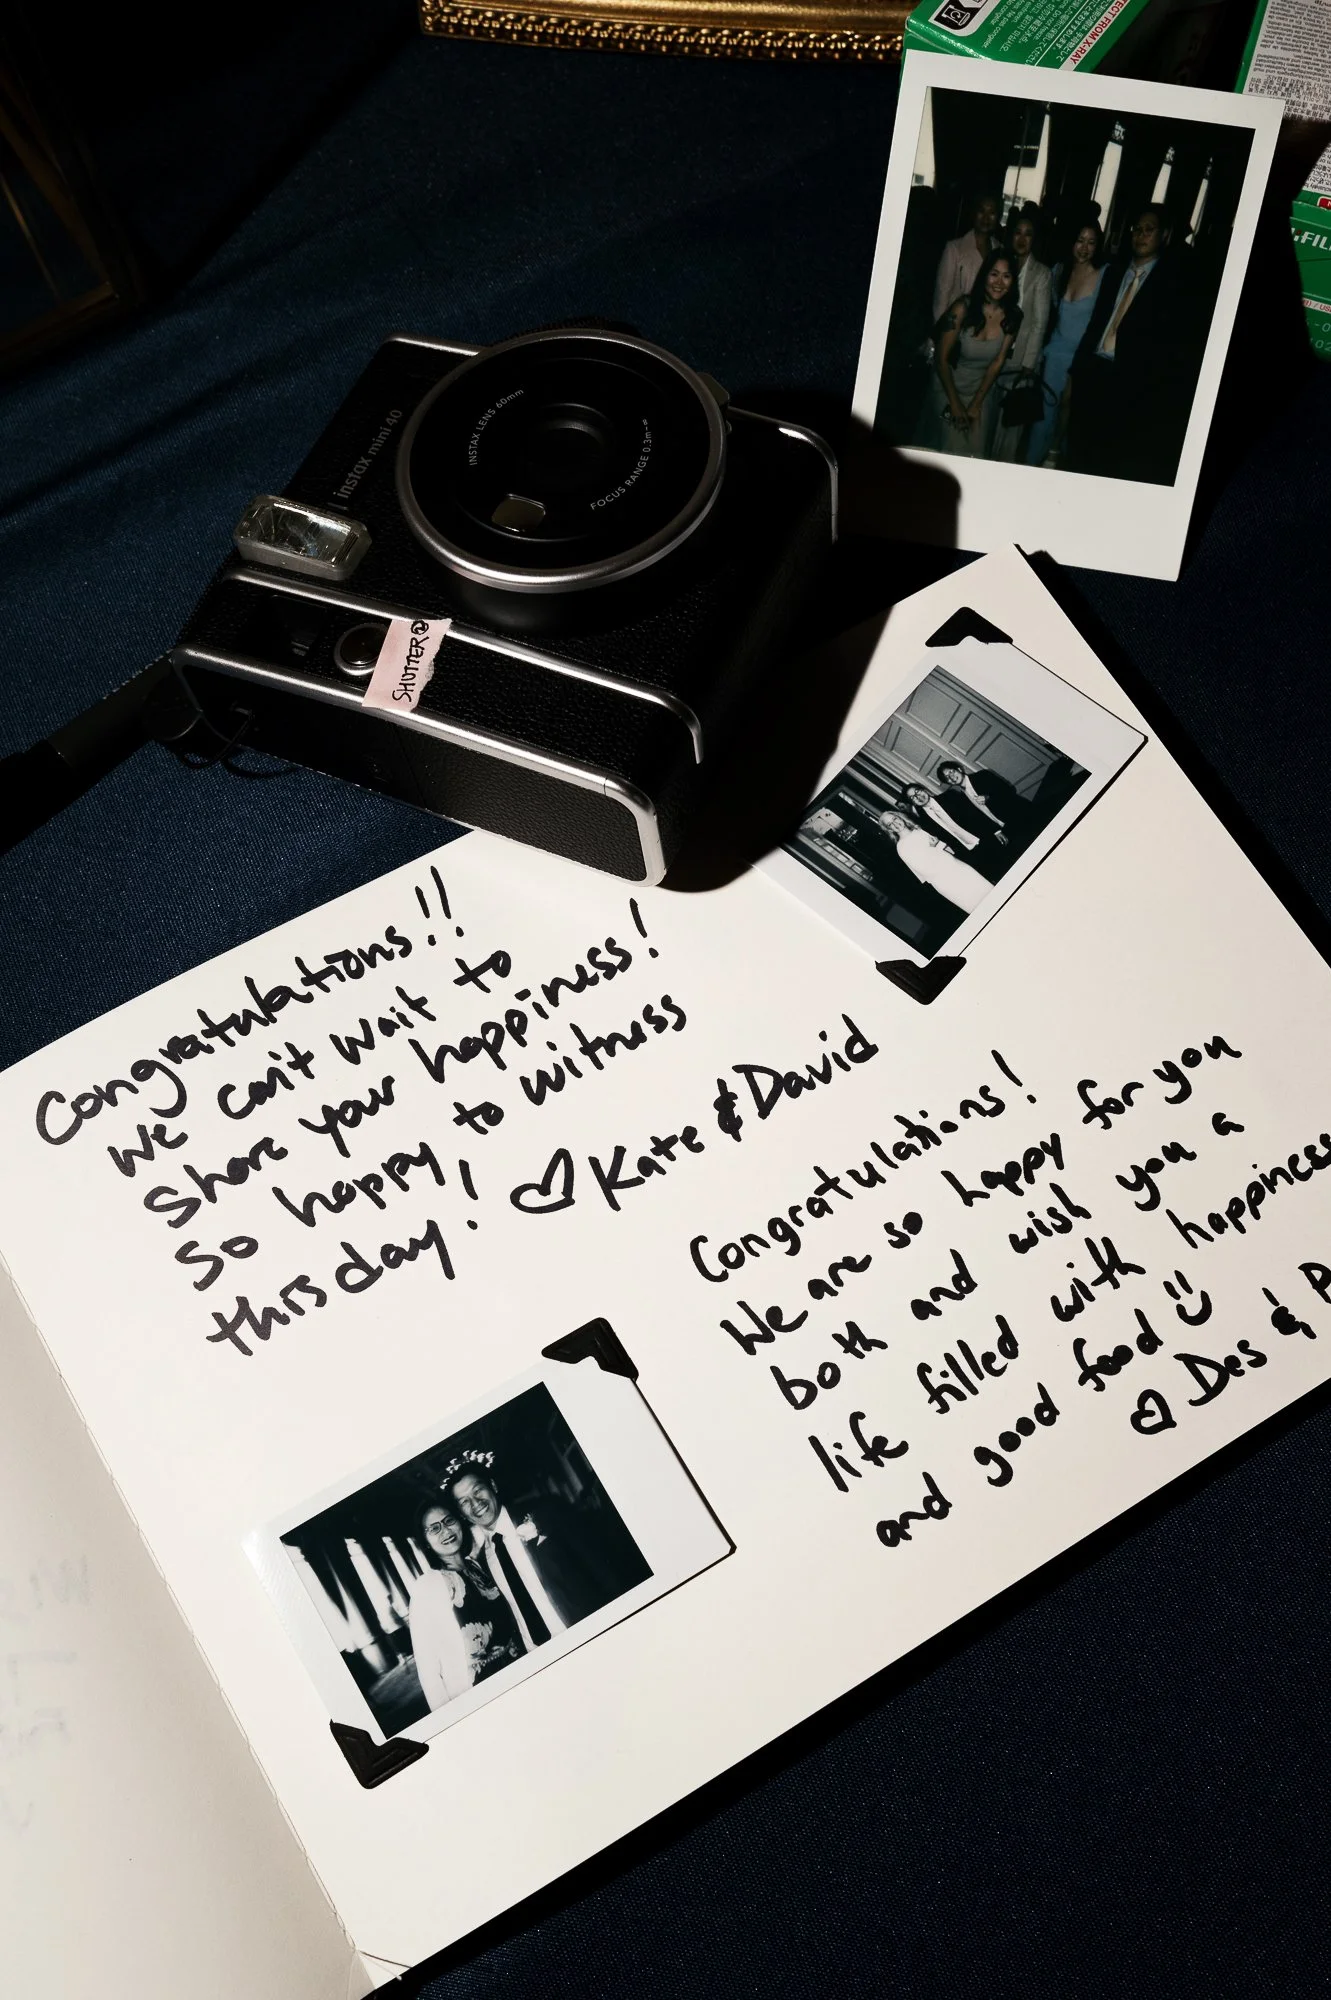 PROTECT FROM X-RAY
instax mini 40
INSTAX LENS 60mm
FOCUS RANGE 0.3m-∞
SHUTTER
Congratulations!!
We can't wait to
share your happiness!
So happy to witness
this day!
♡ Kate & David
Congratulations!
We are so happy for you
both and wish you a
life filled with happiness
and good food
♡ Des &